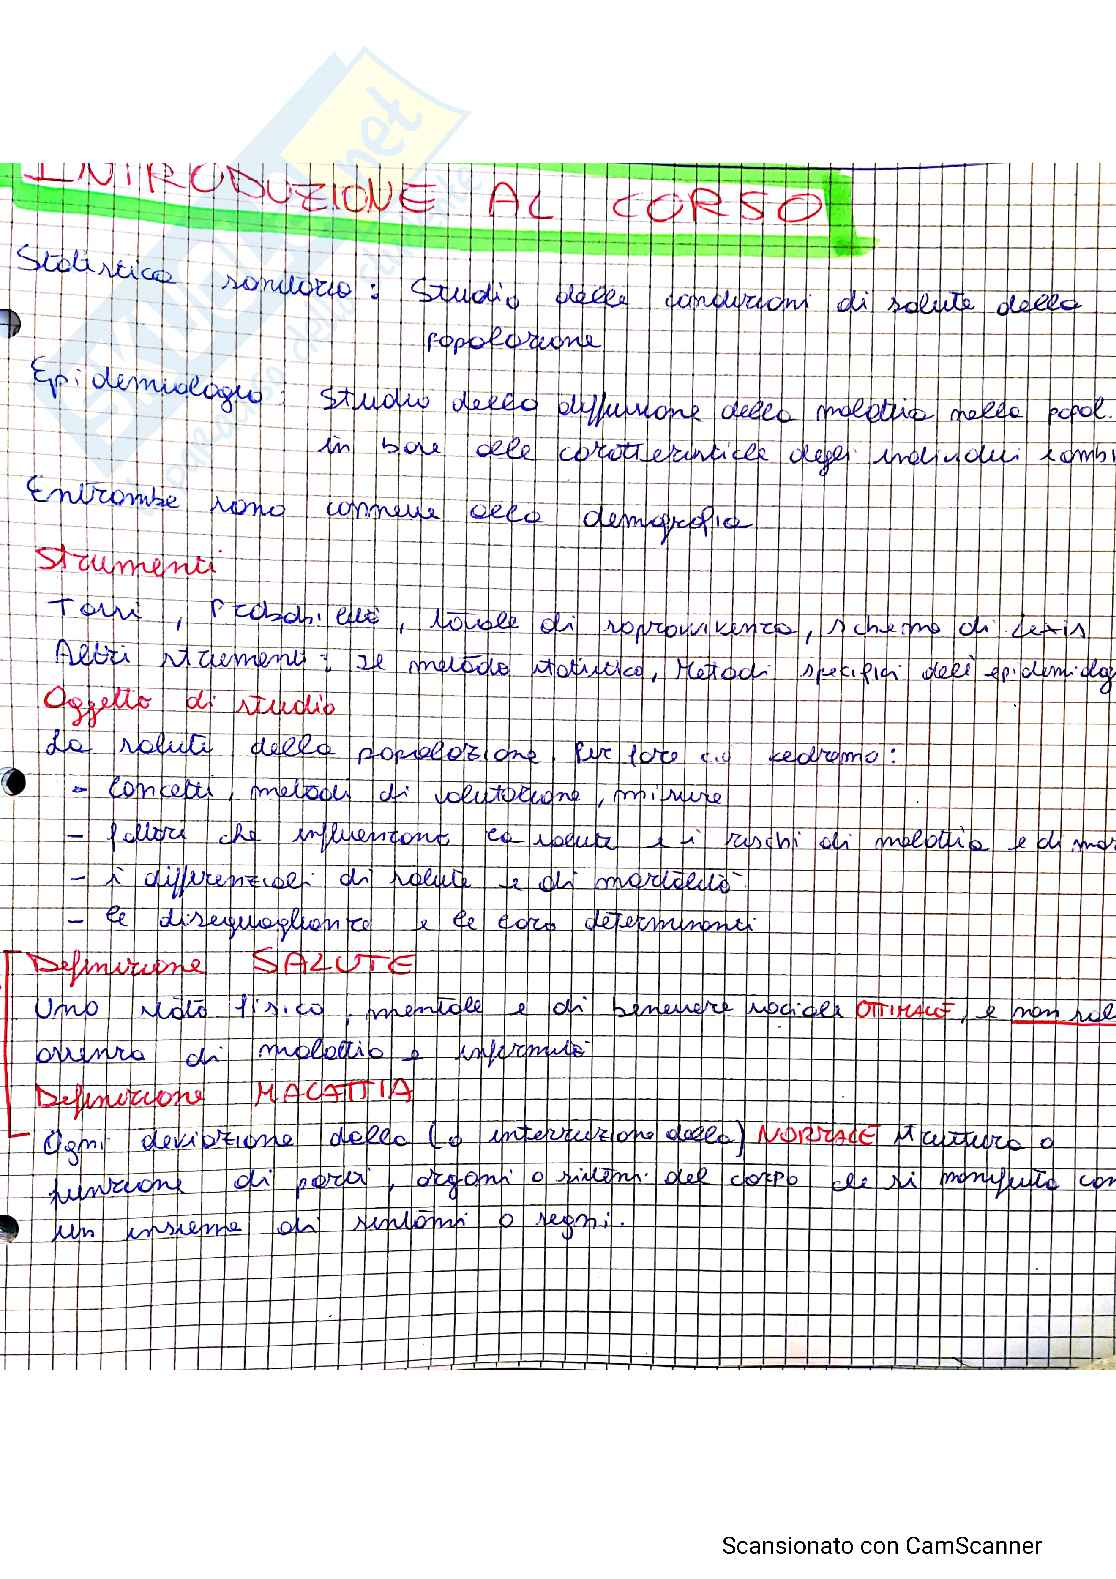 INTRODUZIONE AL CORSO
Statistica sanitaria: Studio delle condizioni di salute della
popolazione
Epidemiologia: Studio della diffusione della malattia nella popol.
in base alle caratteristiche degli individui
Entrambe sono connesse alla demografia
Strumenti
Tassi, Probabilità, tavole di sopravvivenza, schema di Lexis
Altri strumenti: Il metodo statistico, Metodi specifici dell'epidemiolog
Oggetto di studio
La salute della popolazione. Per fare ciò vedremo:
- Concetti, metodi di valutazione, misure
- fattori che influenzano la salute e i rischi di malattia e di mor
- i differenziali di salute e di mortalità
- le diseguaglianze e le loro determinanti
Definizione SALUTE
Uno stato fisico, mentale e di benessere sociale OTTIMALE, e non sol
assenza di malattia e infermità
Definizione MALATTIA
Ogni deviazione dalla (o interruzione della) NORMALE struttura o
funzione di parti, organi o sistemi del corpo che si manifesta con
un insieme di sintomi o segni.
Scansionato con CamScanner